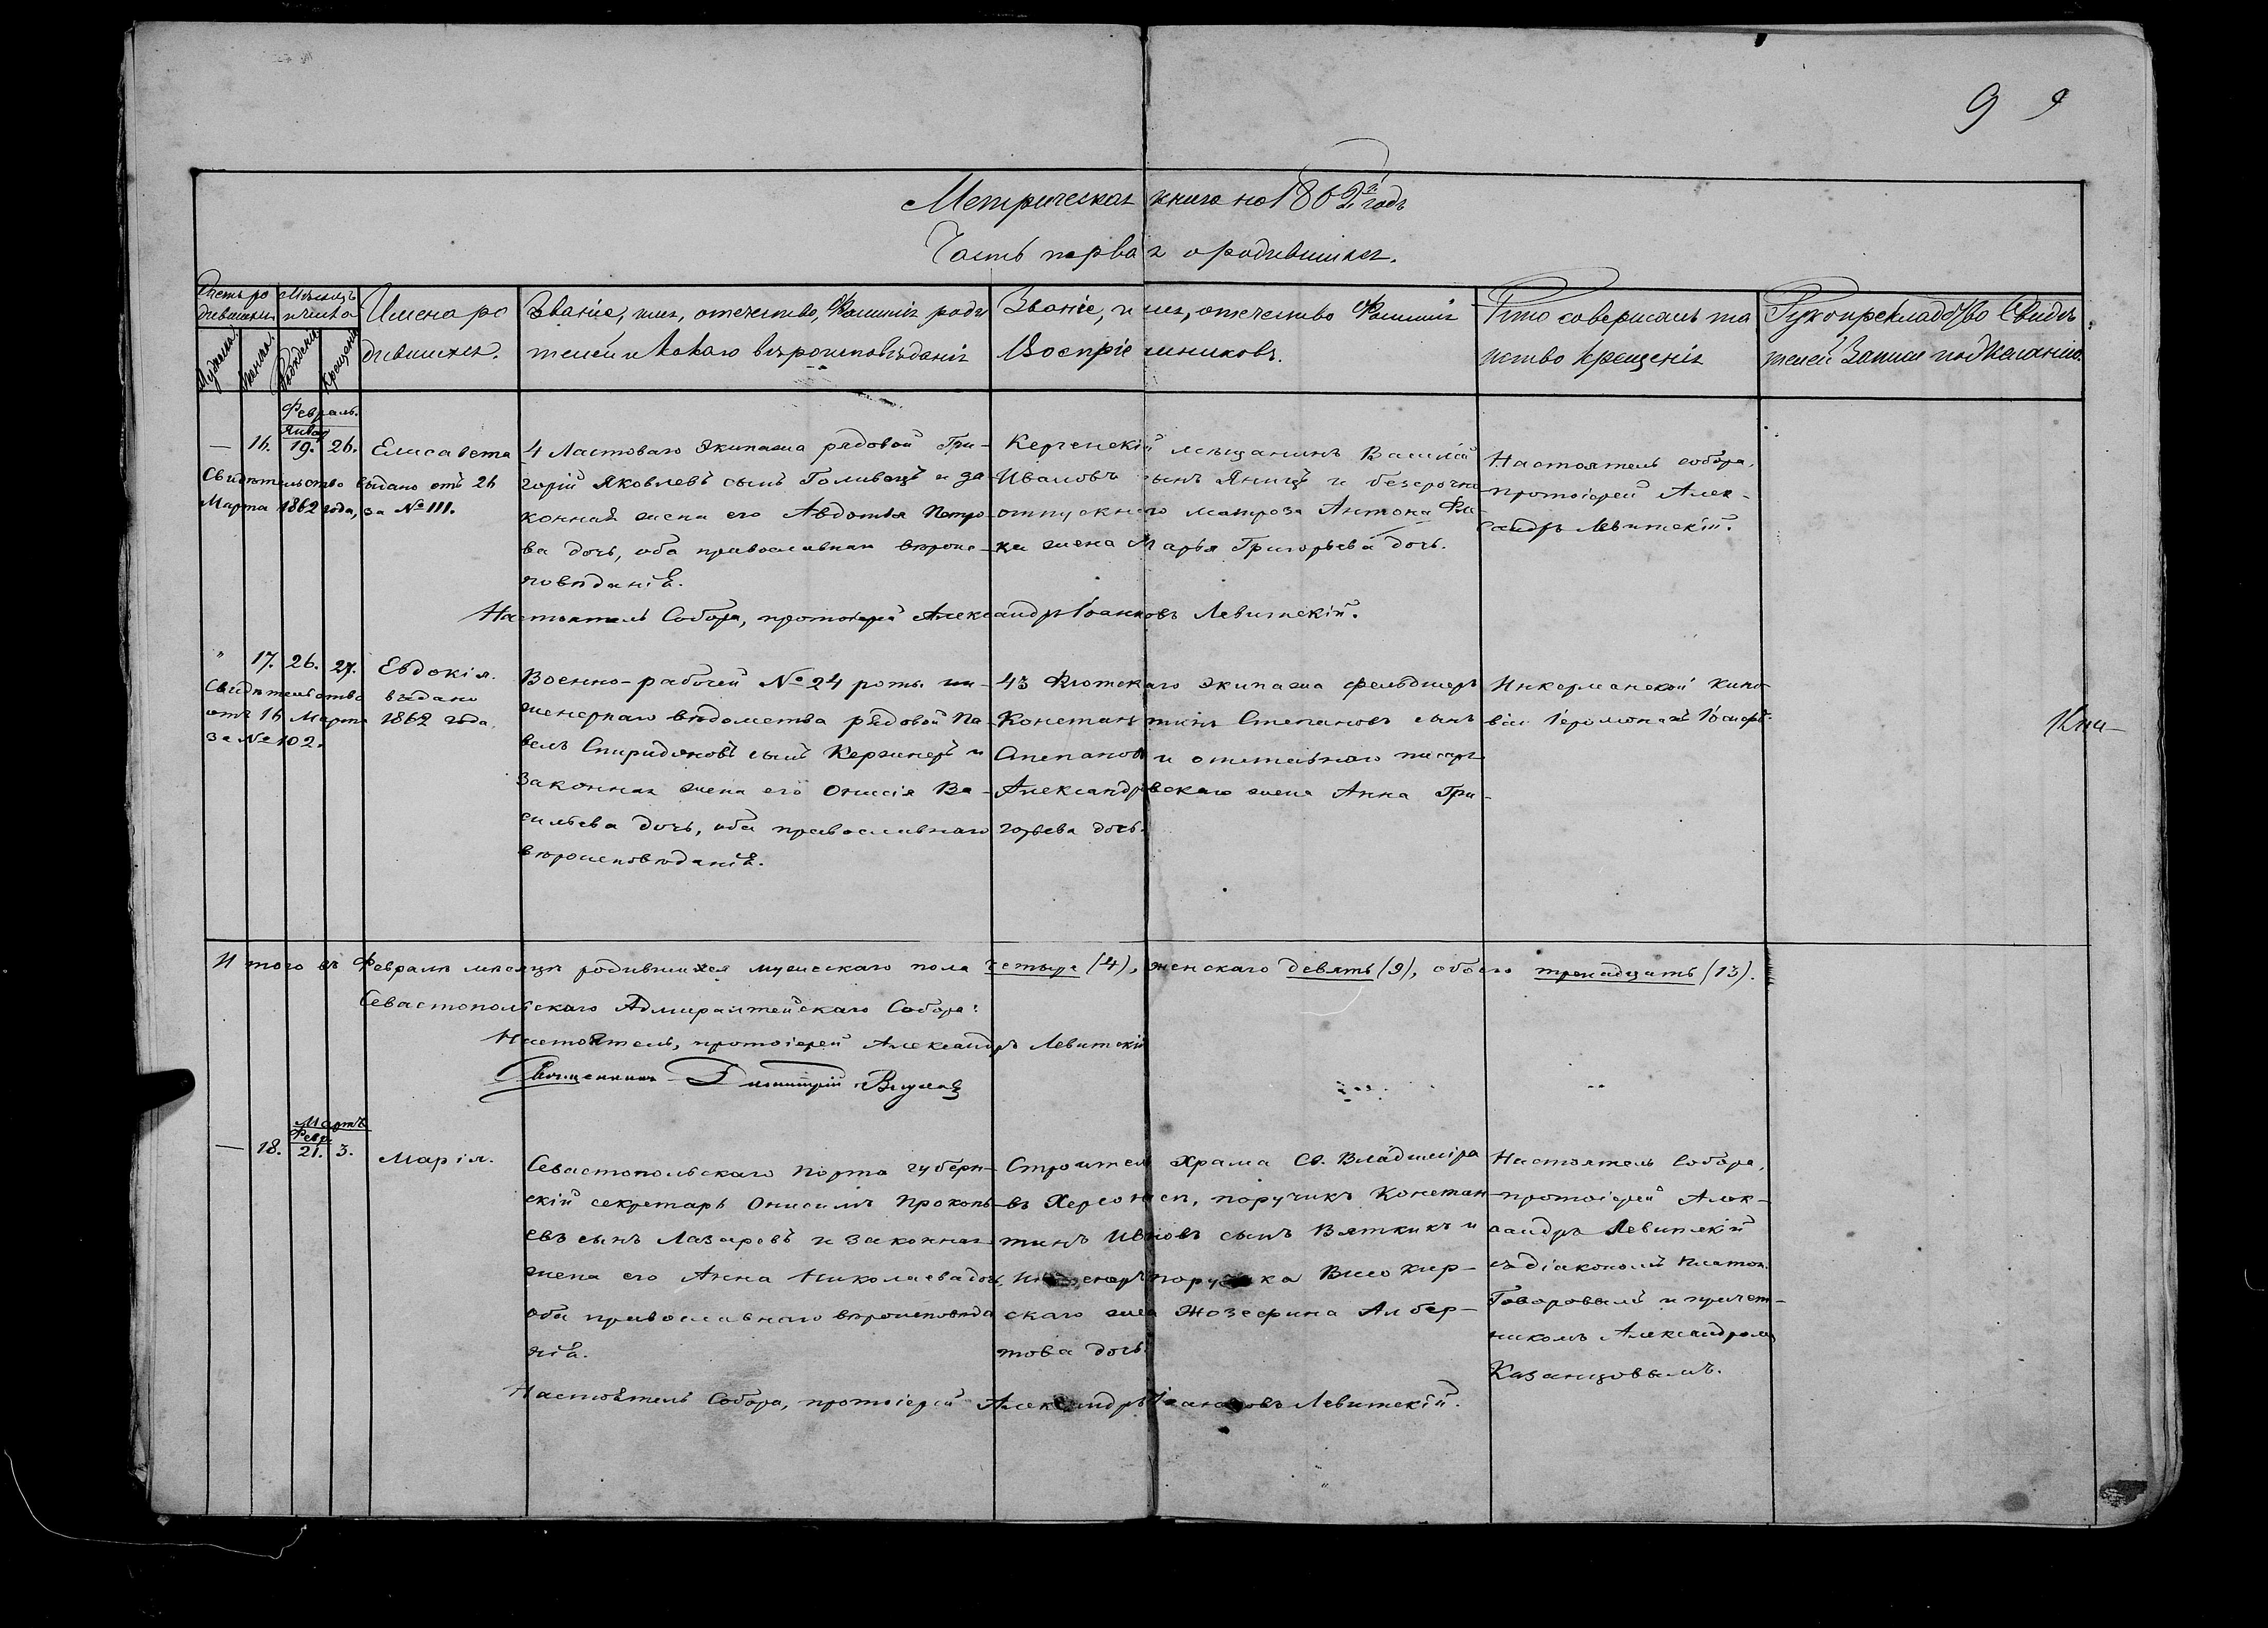 9 9
Метрическая книга на 1862й годъ
Часть первая о родившихся.
Счетъ родившихся
Мужеска
Женска
Мѣсяцъ и числа
Рожденія
Крещенія
Имена родившихся.
Званіе, имя, отечество, Фамилія родителей и какаго вѣроисповѣданія
Званіе, имя, отечество Фамилія Воспріемниковъ.
Кто совершалъ таинство крещенія
Рукоприкладство Свидѣтелей Записи по Желанію.
Февраль.
Январ
— 16. 19. 26. Елисавета
Свидѣтельство выдано отъ 26
Марта 1862 года, за № 111.
4 Ластоваго Экипажа рядовой Гри-
горій Яковлевъ сынъ Голивецъ и за-
конная жена его Авдотья Петро-
ва дочь, оба православнаго вѣроис-
повѣданія.
Керченскій мѣщанинъ Василій
Ивановъ сынъ Яницъ и безсрочно
отпускнаго матроза Антона
жена Марья Григорьева дочь.
Настоятель собора,
протоіерей Алек-
сандръ Левитскій.
Настоятель Собора, протоіерей Александръ Іоанновъ Левитскій.
" 17. 26. 27. Евдокія.
Свидѣтельство выдано
отъ 16 Марта 1862 года,
за № 102.
Военно-рабочей № 24 роты ин-
женернаго вѣдомства рядовой Па-
велъ Спиридоновъ сынъ и
законная жена его Онисія Ва-
сильева дочь, оба православнаго
вѣроисповѣданія.
43 Флотскаго экипажа фельдшеръ
Константинъ Степановъ сынъ
Степановъ и отставнаго писаря
Александровскаго жена Анна Гри-
горьева дочь.
Инкерманской кино-
віи Іеромонахъ Іосифъ.
Кни-
Итого въ Февралѣ мѣсяцѣ родившихся мужескаго пола четыре (4), женскаго девять (9), обоего тринадцать (13).
Севастопольскаго Адмиралтейскаго Собора:
Настоятель, протоіерей Александръ Левитскій
Священникъ Димитрій
Мартъ
Февр.
— 18. 21. 3. Марія.
Севастопольскаго порта губерн-
скій секретарь Онисимъ Прокопь-
евъ сынъ Лазаревъ и законная
жена его Анна Николаева дочь,
оба православнаго вѣроисповѣда
нія.
Строитель Храма Св. Владиміра
въ Херсонесѣ, поручикъ Констан-
тинъ Ивновъ сынъ Вяткинъ и
Инженеръ поручика
скаго жена Жозефина Альбер-
това дочь.
Настоятель Собора,
протоіерей Алек-
сандръ Левитскій
съ діакономъ Платон.
Говоровымъ и причет-
никомъ Александромъ
Казанцовымъ.
Настоятель Собора, протоіерей Александръ Іоанновъ Левитскій.